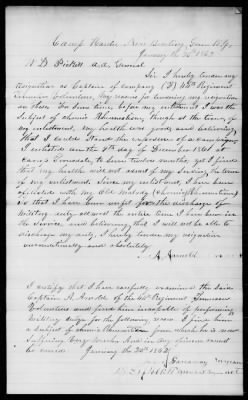 Camp Hardee Near Bowling Green Ky
January the 30th 1862
W D Pickett a.a. General
Sir I hereby tender my
resignation as Captain of company (F) 46th Regiment
Tennessee Volunteers. My reasons for tendering my resignation
as thus. For some time before my enlistment I was the
subject of chronic Rheumatism, though at the time of
my enlistment, my health was good and believing
that I could stand the exposure of a campaign
I enlisted on the 9th day of December 1861 at
Camp to serve twelve months, yet I find
that my health will not admit of my serving the term
of my enlistment. Since my enlistment, I have been
afflicted with my Old Malady (chronic Rheumatism)
so that I have been unfit for the discharge of
military duty almost the entire time I have been in
the service and believing that I will not be able to
discharge my duty, I hereby tender my resignation
unconditionally and absolutely.
A. Arnold
I certify that I have carefully examined the said
Captain A. Arnold of the 46th Regiment Tennessee
Volunteers and find him incapable of performing
Military duty for the following reason I find him
a subject of chronic Rheumatism from which he is now
suffering very much and in my opinion cannot
be cured January the 30th 1862
Surgeon